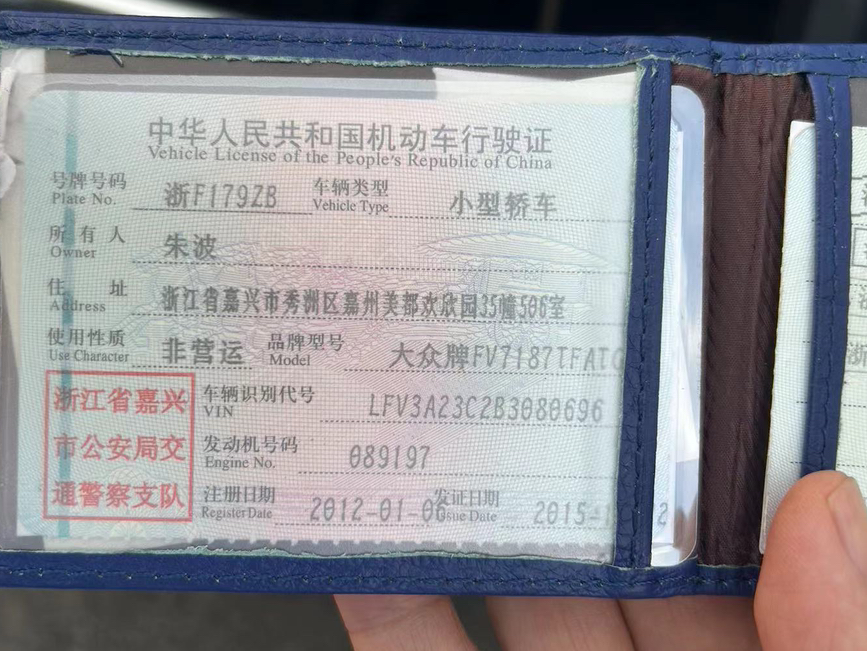 中华人民共和国机动车行驶证
Vehicle License of the People's Republic of China
号牌号码 浙F179ZB 车辆类型 小型轿车
Plate No. Vehicle Type
所有人 朱波
Owner
住址 浙江省嘉兴市秀洲区嘉州美都欢欣园35幢506室
Address
使用性质 非营运 品牌型号 大众牌FV7187TFATG
Use Character Model
浙江省嘉兴
市公安局交
通警察支队
车辆识别代号 LFV3A23C2B3080696
VIN
发动机号码 089197
Engine No.
注册日期 2012-01-06 发证日期 2015-1
Register Date Issue Date
2
浙